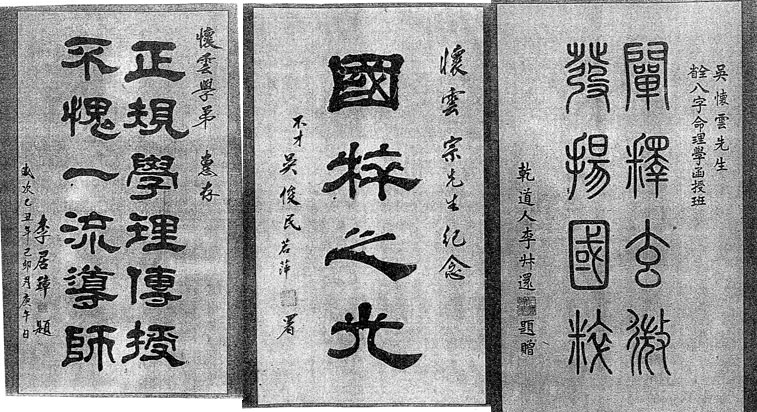 吳懷雲先生
八字命理學函授班
闡釋玄微
發揚國粹
乾道人李
題贈
懷雲宗先生紀念
國粹之光
不才吳俊民若萍
署
懷雲學弟 惠存
正規學理傳授
不愧一流導師
歲次己丑年己卯月庚午日
李居璋 題